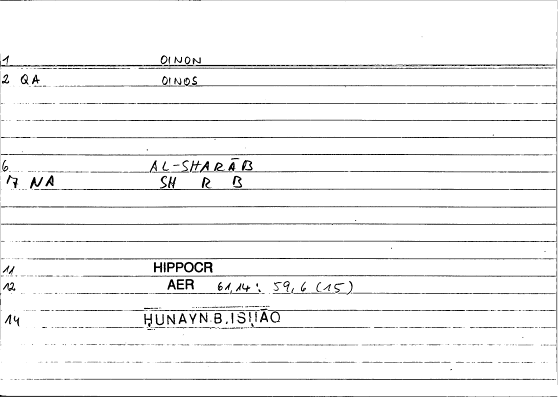 1 OINON
2 QA OINOS
6 AL-SHARĀB
17 NA SH R B
11 HIPPOCR
12 AER 61,14: 59,6 (15)
14 ḤUNAYN B. ISḤĀQ